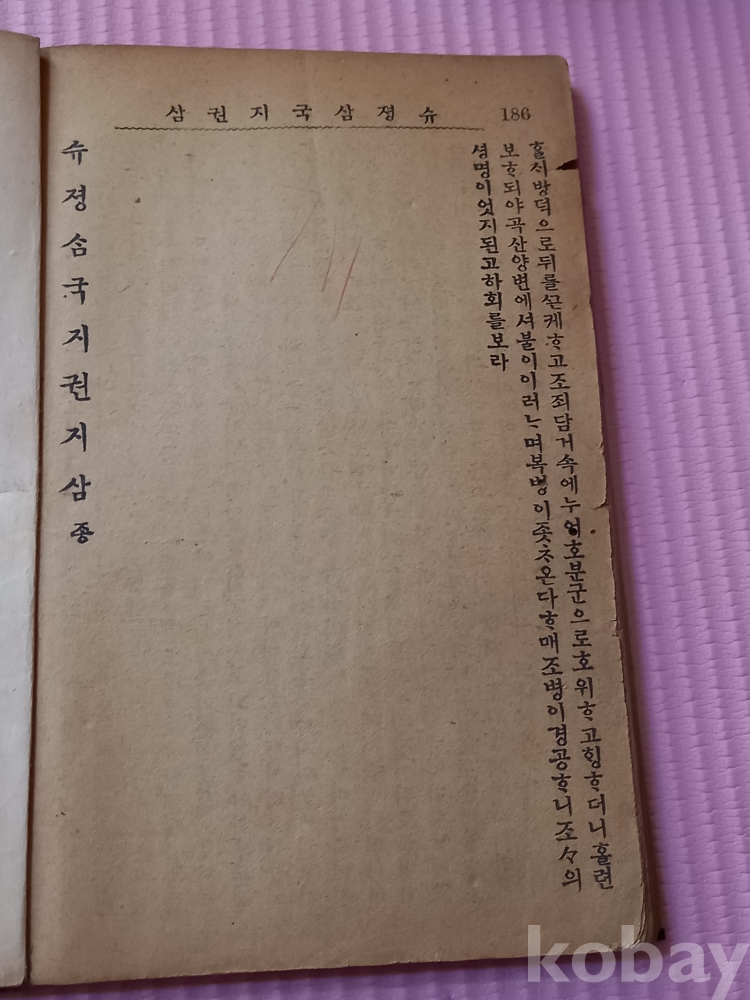 186 슈졍삼국지권삼
ᄒᆞᆯᄉᆡ방덕으로뒤를ᄭᅳᆫ케ᄒᆞ고조죄담거속에누어호분군으로호위ᄒᆞ고ᄒᆡᆼᄒᆞ더니홀련
보ᄒᆞ되야곡산양변에셔불이이러ᄂᆞ며복병이좃ᄎᆞ온다ᄒᆞ매조병이경공ᄒᆞ니조々의
셩명이엇지된고하회를보라
슈졍삼국지권지삼죵
kobay